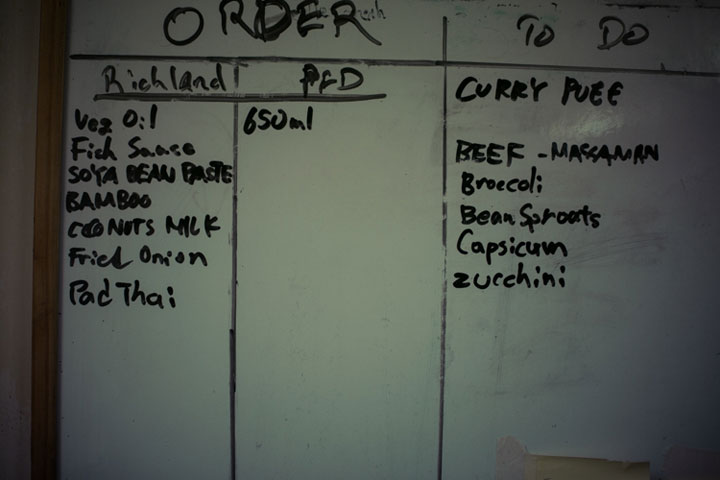 ORDER
Richland
PFD
Veg Oil
Fish Sauce
SOYA BEAN PASTE
BAMBOO
COONUTS MILK
Fried Onion
Pad Thai
650ml
TO DO
CURRY PUFF
BEEF - MASSAMAN
Broccoli
Bean Sprouts
Capsicum
zucchini